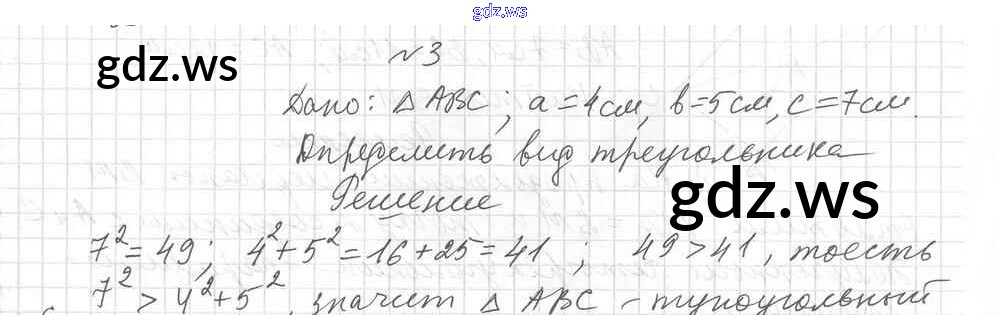 gdz.ws
gdz.ws
№3
Дано: △ ABC; a=4см, b=5см, c=7см.
Определить вид треугольника
Решение
gdz.ws
7²=49; 4²+5²=16+25=41; 49>41, тоесть
7²>4²+5², значит △ ABC - тупоугольный